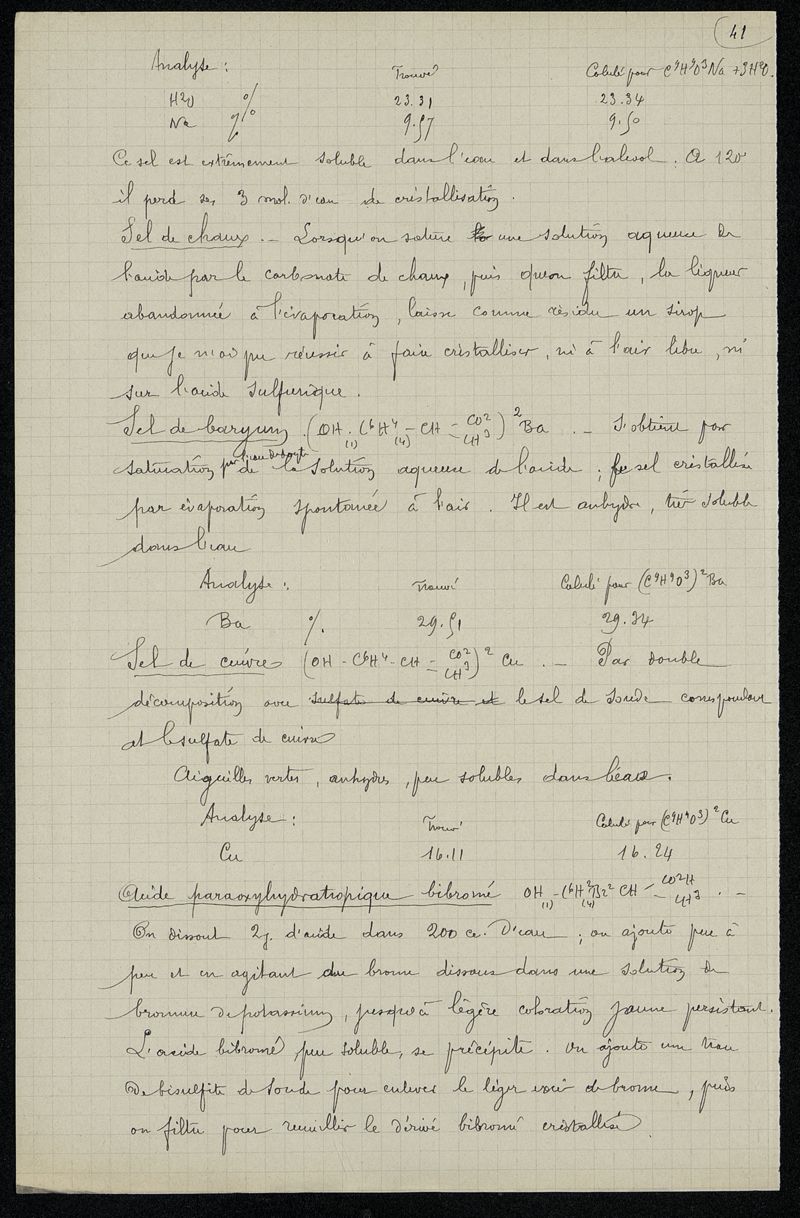 41
Analyse : Trouvé Calculé pour C⁹H⁹O³Na + 3H²O.
H²O % 23.31 23.34
Na % 9.57 9.50
Ce sel est extrêmement soluble dans l'eau et dans l'alcool. A 120°
il perd ses 3 mol. d'eau de cristallisation.
Sel de chaux. — Lorsqu'on sature une solution aqueuse de
l'acide par le carbonate de chaux, puis qu'on filtre, la liqueur
abandonnée à l'évaporation, laisse comme résidu un sirop
que je n'ai pu réussir à faire cristalliser, ni à l'air libre, ni
sur l'acide sulfurique.
Sel de baryum. (OH . C⁶H⁴ - CH = CO² CH³)² Ba . — S'obtient par
(1) (4)
saturation par l'eau de baryte de la solution aqueuse de l'acide ; sel cristallise
par évaporation spontanée à l'air. Il est anhydre, très soluble
dans l'eau
Analyse : Trouvé Calculé pour (C⁹H⁹O³)²Ba
Ba % 29.51 29.34
Sel de cuivre (OH - C⁶H⁴ - CH = CO² CH³)² Cu . — Par double
décomposition avec sulfate de cuivre et le sel de soude correspondant
et le sulfate de cuivre
Aiguilles vertes, anhydres, peu solubles dans l'eau.
Analyse : Trouvé Calculé pour (C⁹H⁹O³)²Cu
Cu 16.11 16.24
Acide paraoxyhydratropique bibromé OH - C⁶H²Br² CH = CO²H CH³ . —
(1) (4)
On dissout 2g. d'acide dans 200 cc. d'eau ; on ajoute peu à
peu et en agitant du brome dissous dans une solution de
bromure de potassium, jusqu'à légère coloration jaune persistant.
L'acide bibromé peu soluble, se précipite. On ajoute une trace
de bisulfite de soude pour enlever le léger excès de brome, puis
on filtre pour recueillir le dérivé bibromé cristallisé